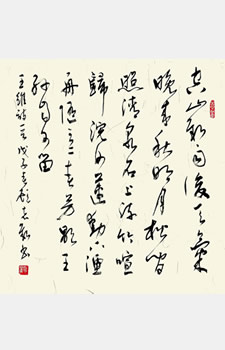 空山新雨後天氣
晚来秋明月松间
照清泉石上流竹喧
歸浣女蓮動下漁
舟随意春芳歇王
孙自可留
王维诗一 戊子春